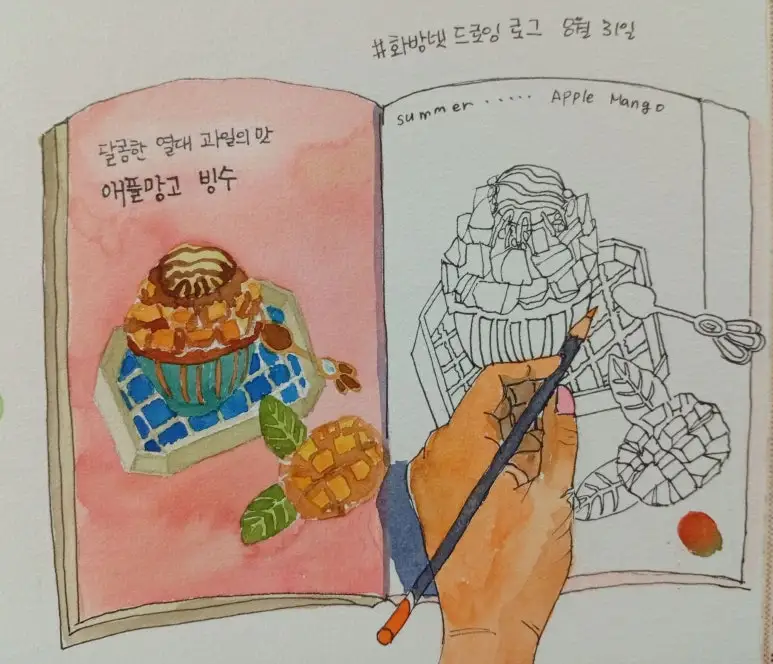 #화방넷 드로잉 로그 8월 31일
달콤한 열대 과일의 맛
애플망고 빙수
summer ..... Apple Mango